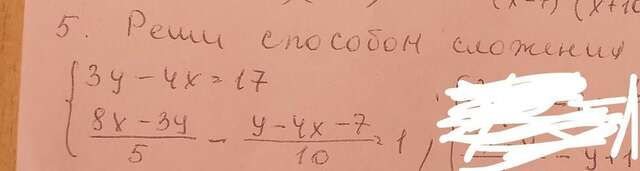 (x-7) (x+10
5. Реши способом сложения
{ 3y - 4x = 17
(8x - 3y)/5 - (y - 4x - 7)/10 = 1,
- y + 1